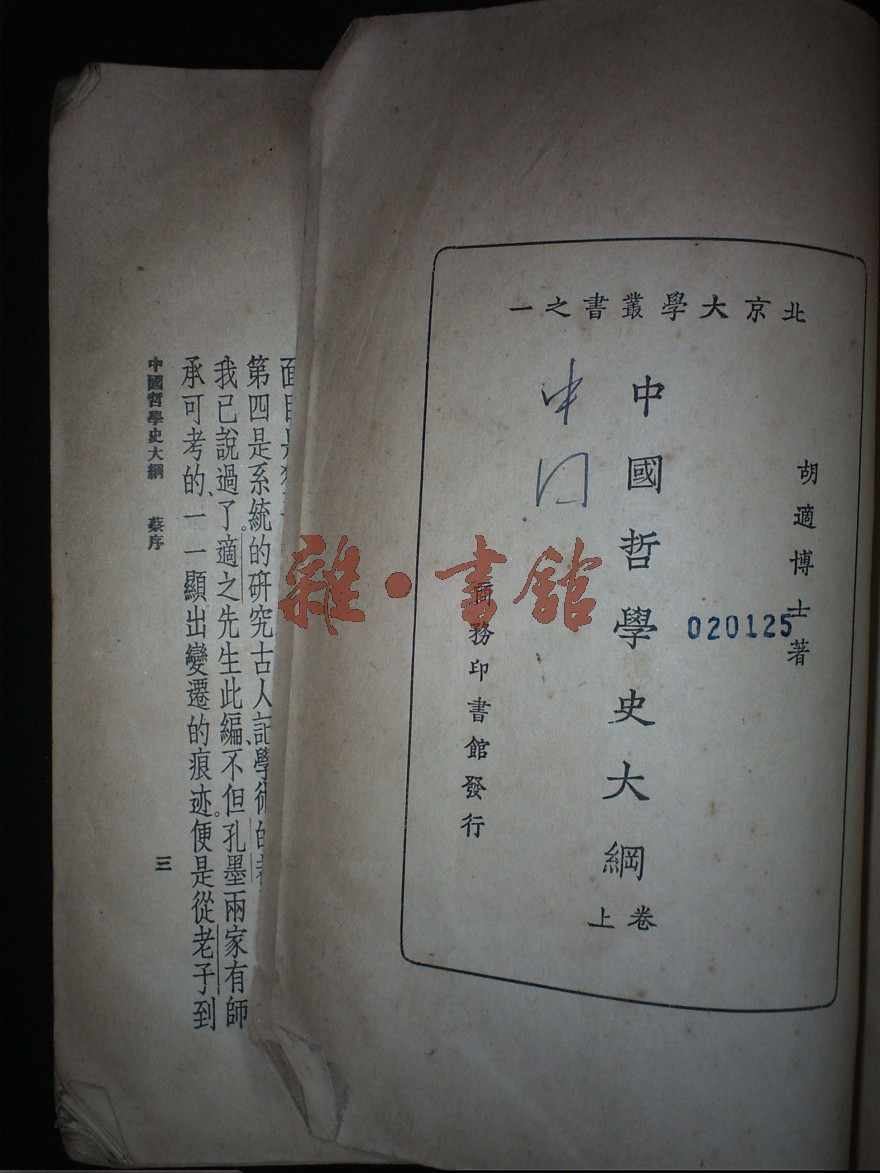 北京大學叢書之一
胡適博士著
020125
中國哲學史大綱
卷上
商務印書館發行
雜·書館
第四是系統的研究古人記學術的
我已說過了。適之先生此編、不但孔墨兩家有師
承可考的、一一顯出變遷的痕迹。便是從老子到
中國哲學史大綱 蔡序
三